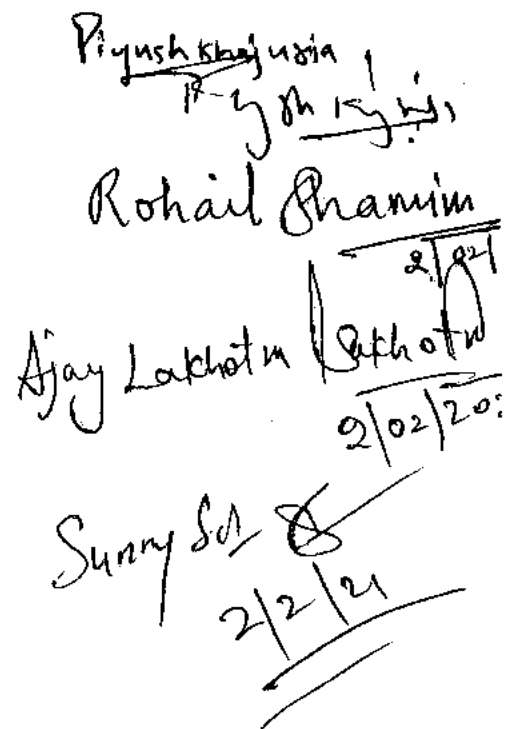 Piyush Khajuria
Rohail Shamim
2/02/
Ajay Lakhotia Lakhotia
2/02/20
Sunny
2/2/21